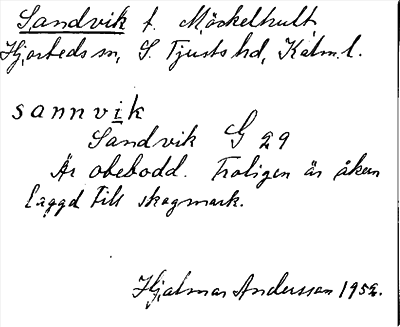 Sandvik t. Möckelhult
Hjorteds sn, S. Tjusts hd, Kalm. l.
sannvik
Sandvik G 29
Är obebodd. Troligen är åkern
laggd till skogmark.
Hjalmar Andersson 1952.